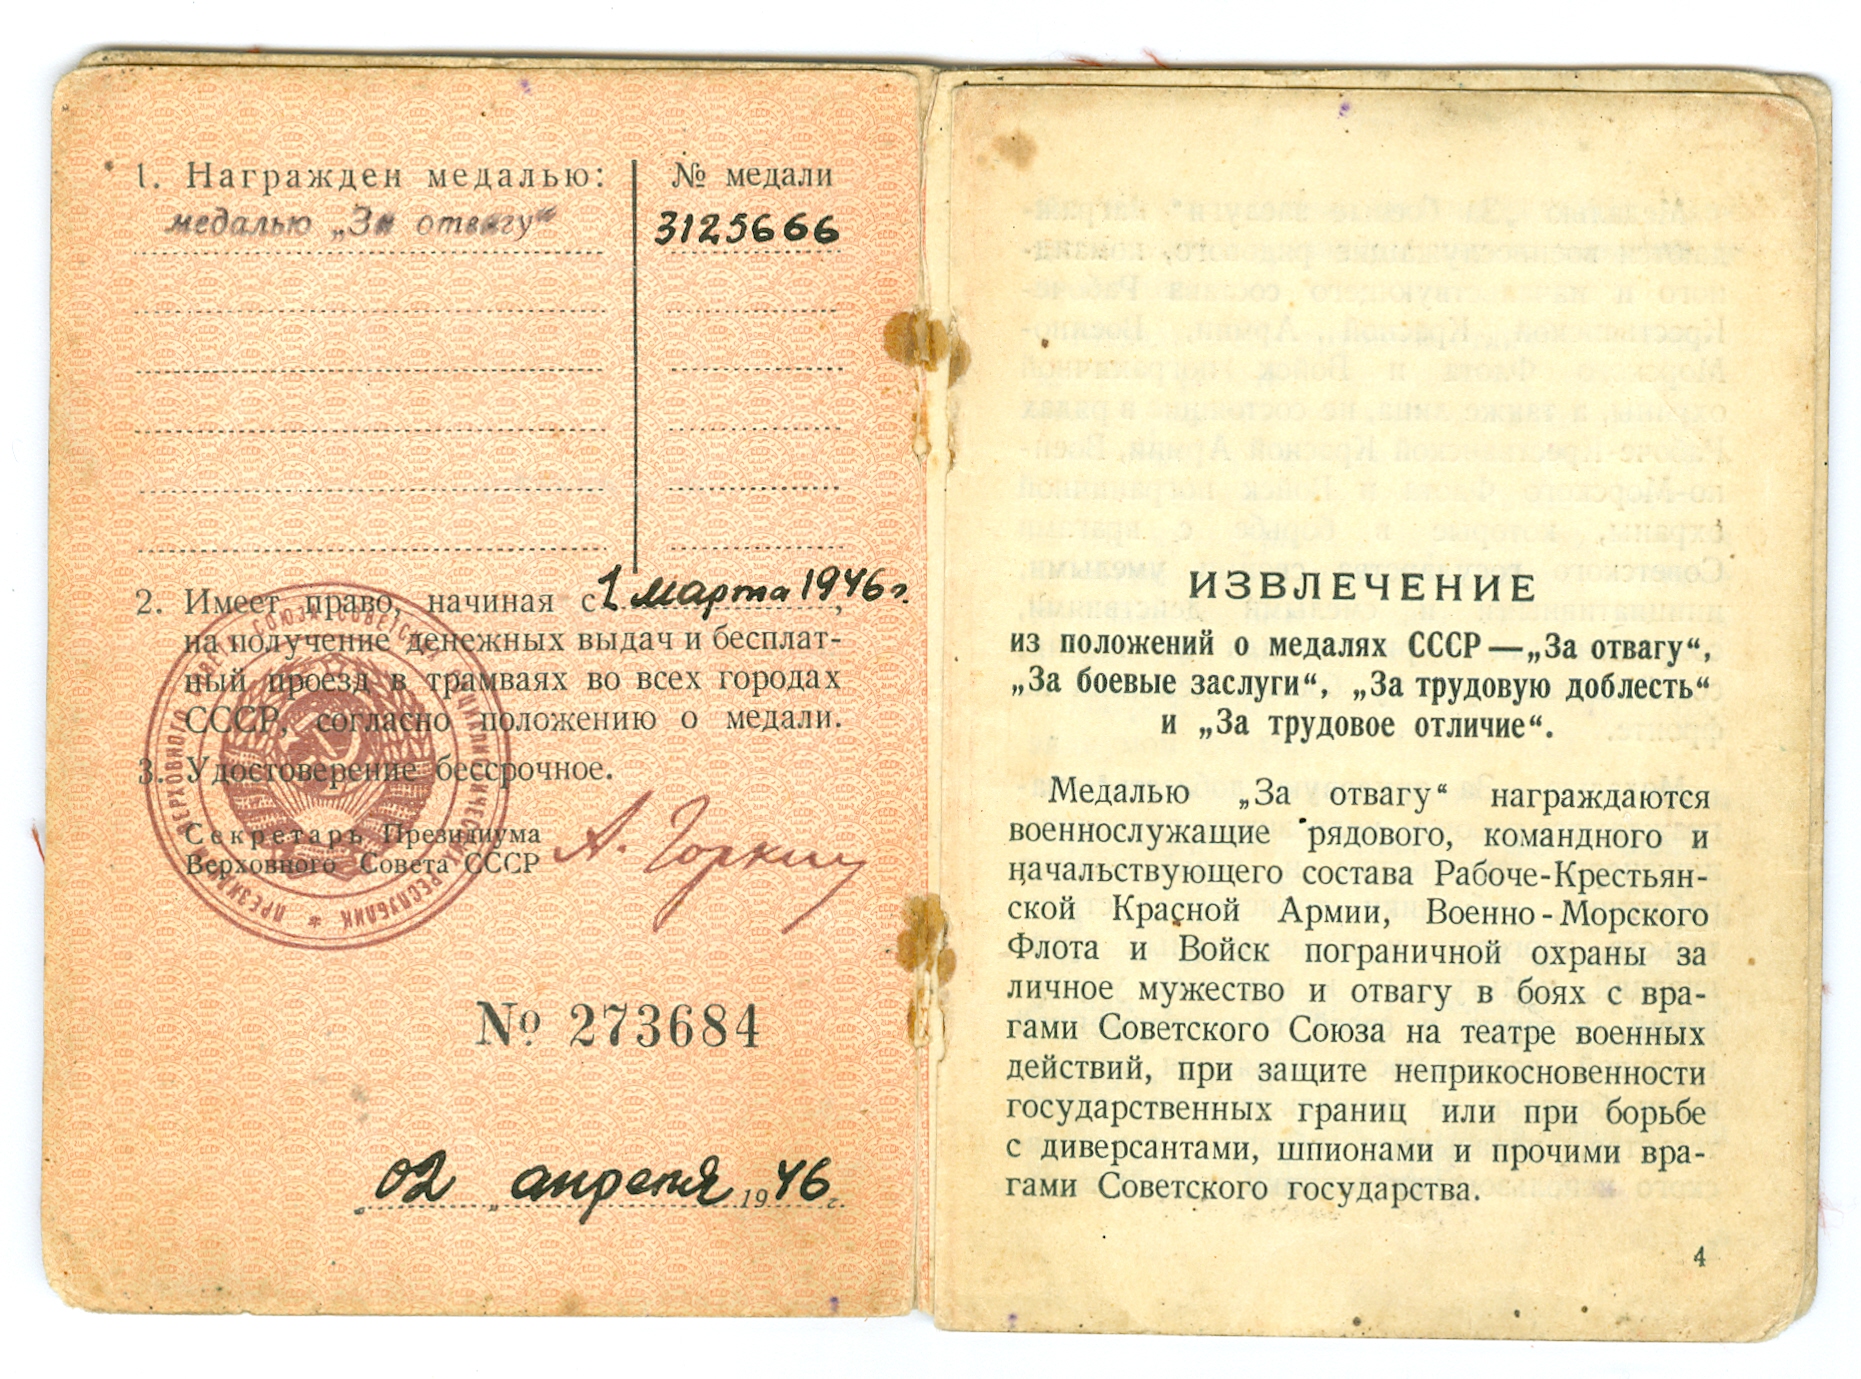 1. Награжден медалью:
№ медали
медалью „За отвагу“
3125666
2. Имеет право, начиная с 1 марта 1946 г.,
на получение денежных выдач и бесплат-
ный проезд в трамваях во всех городах
СССР, согласно положению о медали.
3. Удостоверение бессрочное.
Секретарь Президиума
Верховного Совета СССР
А. Горкин
№ 273684
02 „ апреля 1946 г.
ИЗВЛЕЧЕНИЕ
из положений о медалях СССР—„За отвагу“,
„За боевые заслуги“, „За трудовую доблесть“
и „За трудовое отличие“.
Медалью „За отвагу“ награждаются
военнослужащие рядового, командного и
начальствующего состава Рабоче-Крестьян-
ской Красной Армии, Военно-Морского
Флота и Войск пограничной охраны за
личное мужество и отвагу в боях с вра-
гами Советского Союза на театре военных
действий, при защите неприкосновенности
государственных границ или при борьбе
с диверсантами, шпионами и прочими вра-
гами Советского государства.
4